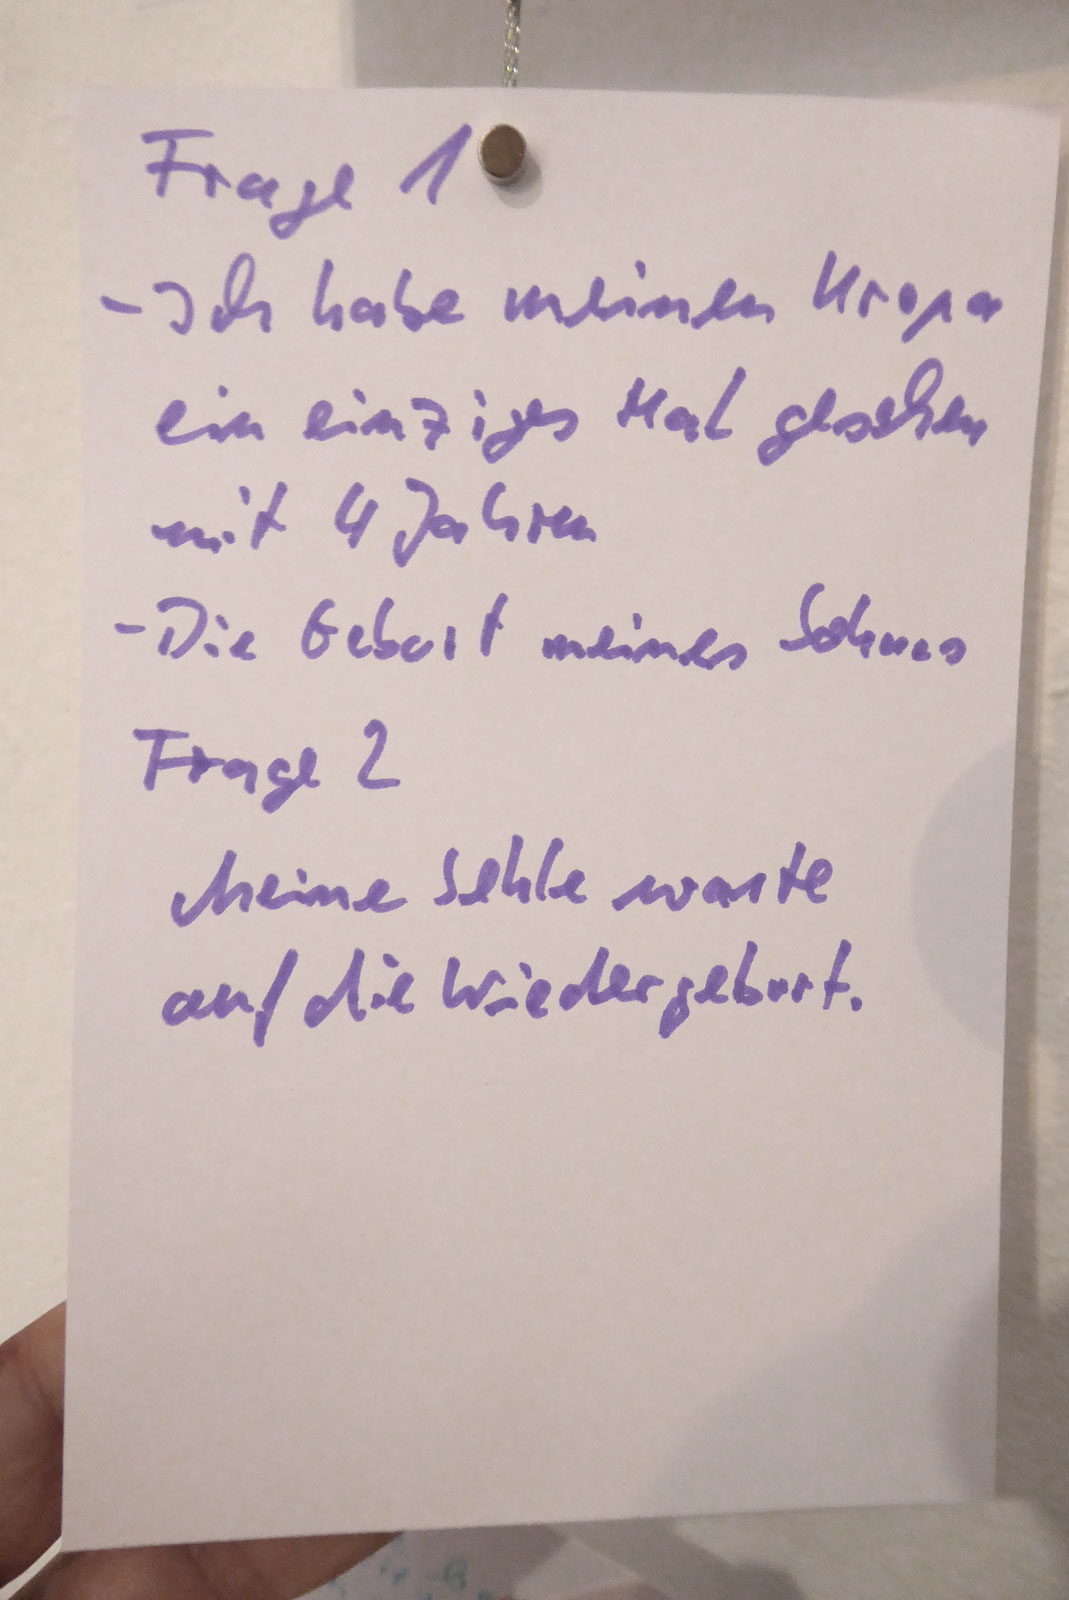 Frage 1
- Ich habe meinen Uropa
ein einziges Mal gesehen
mit 4 Jahren
- Die Geburt meines Sohnes
Frage 2
Meine Sehle warte
auf die Wiedergeburt.